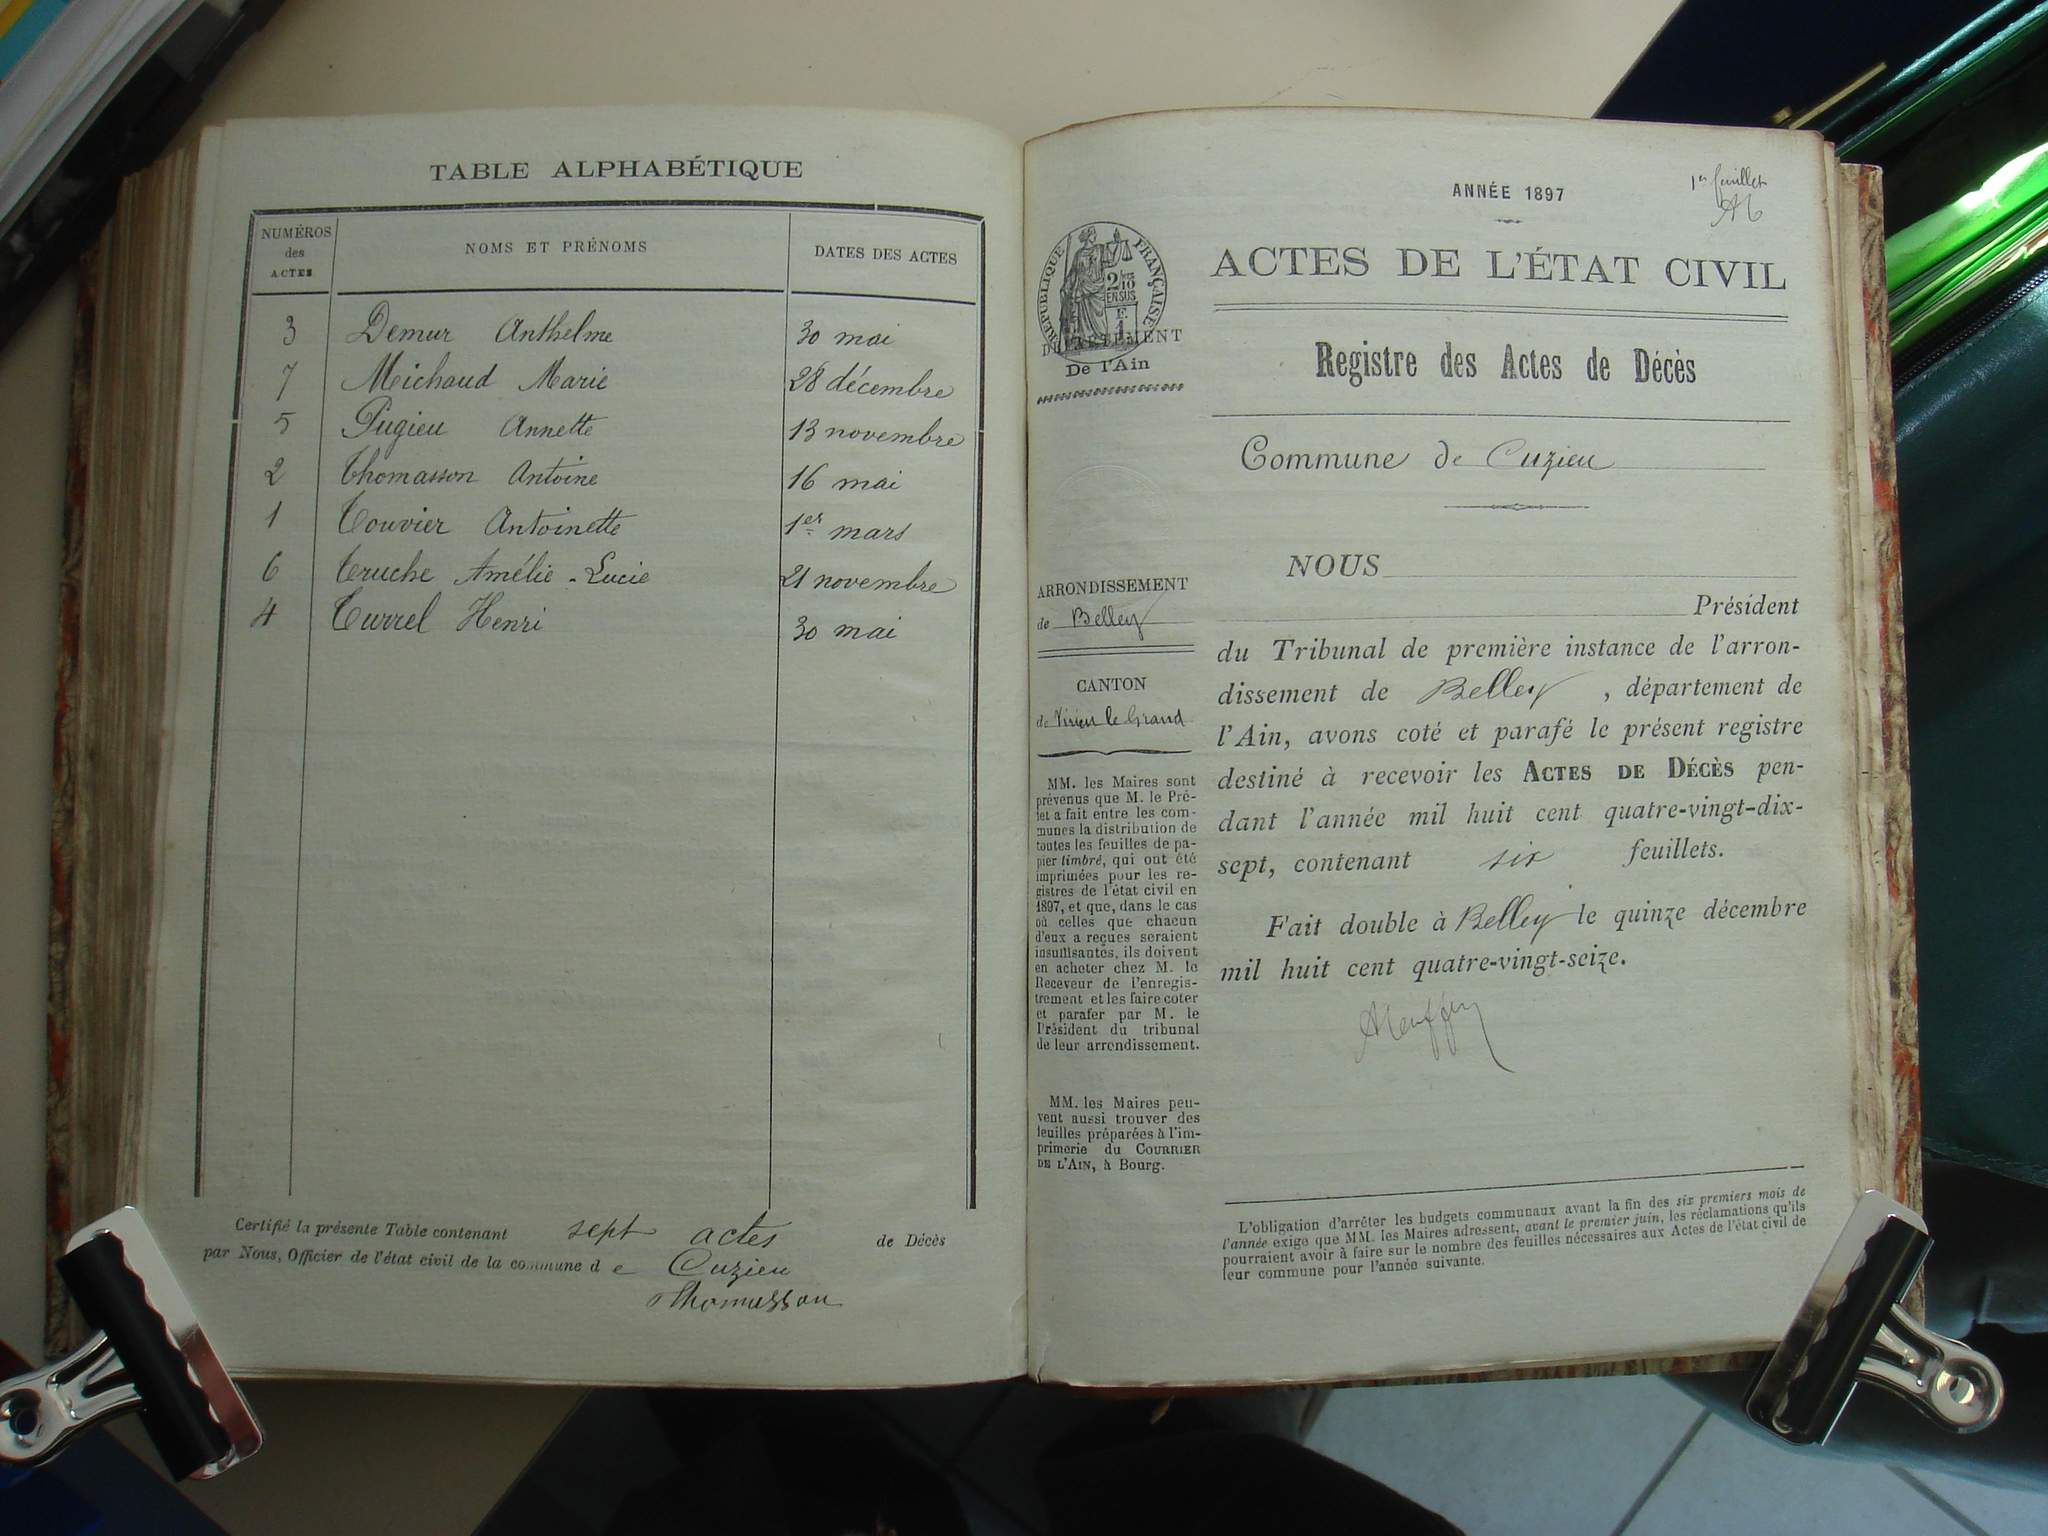 TABLE ALPHABÉTIQUE
NUMÉROS des ACTES NOMS ET PRÉNOMS DATES DES ACTES
3 Demur Anthelme 30 mai
7 Michaud Marie 28 décembre
5 Pugieu Annette 13 novembre
2 Thomasson Antoine 16 mai
1 Touvier Antoinette 1er mars
6 Truche Amélie-Lucie 21 novembre
4 Turrel Henri 30 mai
Certifié la présente Table contenant sept actes de Décès
par Nous, Officier de l'état civil de la commune de Cuzieu
Thomasson
1er feuillet
ANNÉE 1897
ACTES DE L'ÉTAT CIVIL
Registre des Actes de Décès
Commune de Cuzieu
NOUS
Président
du Tribunal de première instance de l'arron-
dissement de Belley, département de
l'Ain, avons coté et parafé le présent registre
destiné à recevoir les ACTES DE DÉCÈS pen-
dant l'année mil huit cent quatre-vingt-dix-
sept, contenant six feuillets.
Fait double à Belley le quinze décembre
mil huit cent quatre-vingt-seize.
RÉPUBLIQUE FRANÇAISE
2/10
EN SUS
DÉPARTEMENT
De l'Ain
ARRONDISSEMENT
de Belley
CANTON
de Virieu le Grand
MM. les Maires sont
prévenus que M. le Pré-
fet a fait entre les com-
munes la distribution de
toutes les feuilles de pa-
pier timbré, qui ont été
imprimées pour les re-
gistres de l'état civil en
1897, et que, dans le cas
où celles que chacun
d'eux a reçues seraient
insuffisantes, ils doivent
en acheter chez M. le
Receveur de l'enregis-
trement et les faire coter
et parafer par M. le
Président du tribunal
de leur arrondissement.
MM. les Maires peu-
vent aussi trouver des
feuilles préparées à l'im-
primerie du COURRIER
DE L'AIN, à Bourg.
L'obligation d'arrêter les budgets communaux avant la fin des six premiers mois de
l'année exige que MM. les Maires adressent, avant le premier juin, les réclamations qu'ils
pourraient avoir à faire sur le nombre des feuilles nécessaires aux Actes de l'état civil de
leur commune pour l'année suivante.